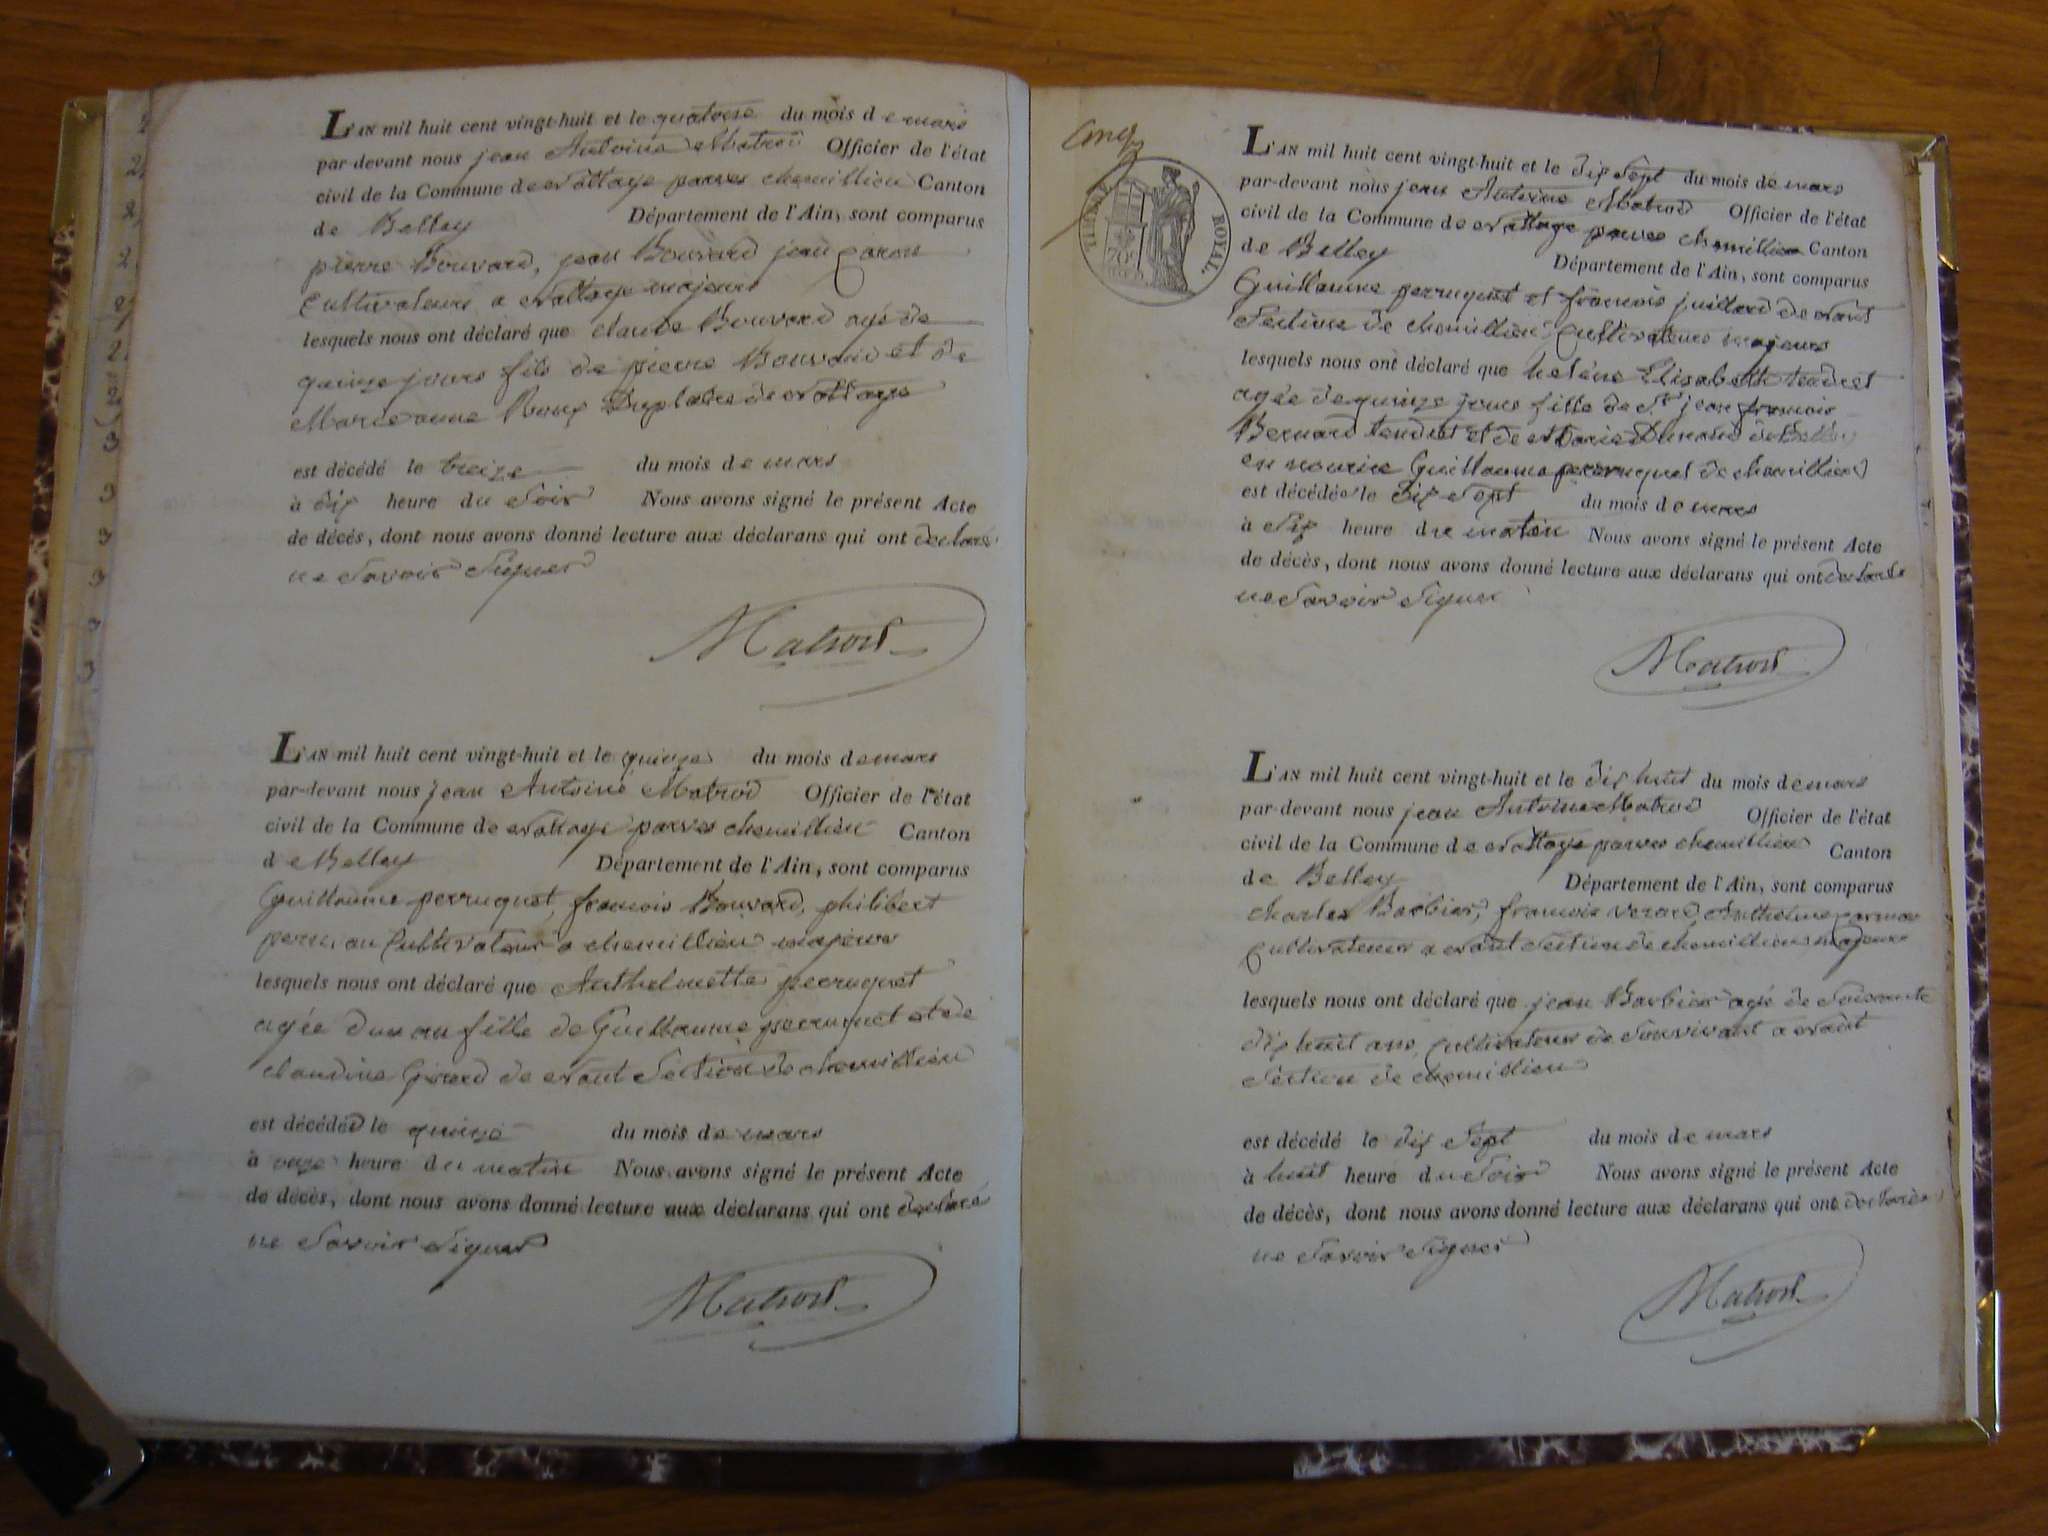 L'AN mil huit cent vingt-huit et le quatorse du mois de mars
par-devant nous jean Antoine Matrod Officier de l'état
civil de la Commune de nattage parves chemillieu Canton
de Belley Département de l'Ain, sont comparus
pierre Bouvard, jean Bouvard jean
Cultivateurs a nattage majeurs
lesquels nous ont déclaré que claude Bouvard agé de
quinze jours fils de pierre Bouvard et de
Marie anne Roux de nattage
est décédé le treize du mois de mars
à dix heure du soir Nous avons signé le présent Acte
de décès, dont nous avons donné lecture aux déclarans qui ont declaré
ne savoir signer
Matrod
L'AN mil huit cent vingt-huit et le quinze du mois de mars
par-devant nous jean Antoine Matrod Officier de l'état
civil de la Commune de nattage parves chemillieu Canton
de Belley Département de l'Ain, sont comparus
Guillaume perruquet, francois Bouvard, philibert
Cultivateurs a chemillieu majeurs
lesquels nous ont déclaré que Anthelmette perruquet
agée dun an fille de Guillaume perruquet et de
claudine Girerd de nant Section de chemillieu
est décédée le quinze du mois de mars
à onze heure du matin Nous avons signé le présent Acte
de décès, dont nous avons donné lecture aux déclarans qui ont declaré
ne savoir signer
Matrod
TIMBRE ROYAL
70c
L'AN mil huit cent vingt-huit et le dix sept du mois de mars
par-devant nous jean Antoine Matrod Officier de l'état
civil de la Commune de nattage parves chemillieu Canton
de Belley Département de l'Ain, sont comparus
Guillaume perruquet et francois juillard de nant
Section de chemillieu Cultivateurs majeurs
lesquels nous ont déclaré que heléne Elisabeth tendret
agée de quinze jours fille de Sr jean francois
Bernard tendret et de Marie Dumand de Belley
en nourice Guillaume perruquet de chemillieu
est décédée le dix sept du mois de mars
à six heure du matin Nous avons signé le présent Acte
de décès, dont nous avons donné lecture aux déclarans qui ont declaré
ne savoir signer
Matrod
L'AN mil huit cent vingt-huit et le dix huit du mois de mars
par-devant nous jean Antoine Matrod Officier de l'état
civil de la Commune de nattage parves chemillieu Canton
de Belley Département de l'Ain, sont comparus
charles Barbier, francois Anthelme
Cultivateurs a nant Section de chemillieu majeurs
lesquels nous ont déclaré que jean Barbier agé de soixante
dix huit ans Cultivateur de son vivant a nant
Section de chemillieu
est décédé le dix sept du mois de mars
à huit heure du soir Nous avons signé le présent Acte
de décès, dont nous avons donné lecture aux déclarans qui ont declarés
ne savoir signer
Matrod